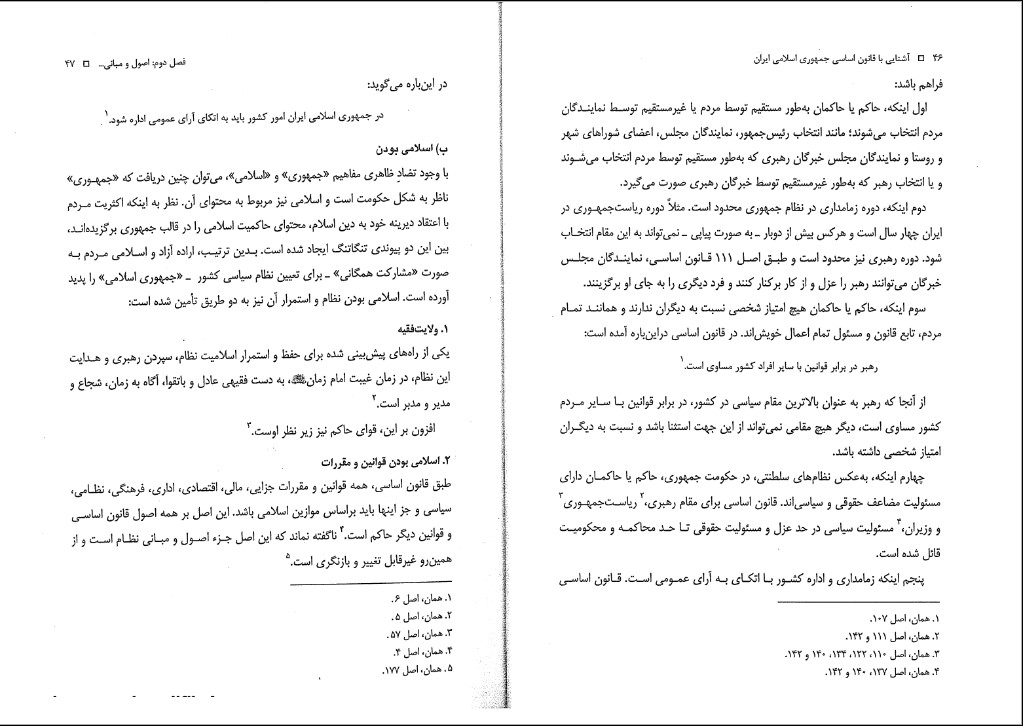 ۴۶ □ آشنایی با قانون اساسی جمهوری اسلامی ایران
فراهم باشد:
اول اینکه، حاکم یا حاکمان به‌طور مستقیم توسط مردم یا غیرمستقیم توسط نمایندگان
مردم انتخاب می‌شوند؛ مانند انتخاب رئیس‌جمهور، نمایندگان مجلس، اعضای شوراهای شهر
و روستا و نمایندگان مجلس خبرگان رهبری که به‌طور مستقیم توسط مردم انتخاب می‌شوند
و یا انتخاب رهبر که به‌طور غیرمستقیم توسط خبرگان رهبری صورت می‌گیرد.
دوم اینکه، دوره زمامداری در نظام جمهوری محدود است. مثلاً دوره ریاست‌جمهوری در
ایران چهار سال است و هرکس بیش از دوبار ـ به صورت پیاپی ـ نمی‌تواند به این مقام انتخاب
شود. دوره رهبری نیز محدود است و طبق اصل ۱۱۱ قانون اساسی، نمایندگان مجلس
خبرگان می‌توانند رهبر را عزل و از کار برکنار کنند و فرد دیگری را به جای او برگزینند.
سوم اینکه، حاکم یا حاکمان هیچ امتیاز شخصی نسبت به دیگران ندارند و همانند تمام
مردم، تابع قانون و مسئول تمام اعمال خویش‌اند. در قانون اساسی دراین‌باره آمده است:
رهبر در برابر قوانین با سایر افراد کشور مساوی است.۱
از آنجا که رهبر به عنوان بالاترین مقام سیاسی در کشور، در برابر قوانین با سایر مردم
کشور مساوی است، دیگر هیچ مقامی نمی‌تواند از این جهت استثنا باشد و نسبت به دیگران
امتیاز شخصی داشته باشد.
چهارم اینکه، به‌عکس نظام‌های سلطنتی، در حکومت جمهوری، حاکم یا حاکمان دارای
مسئولیت مضاعف حقوقی و سیاسی‌اند. قانون اساسی برای مقام رهبری،۲ ریاست‌جمهوری۳ و
وزیران،۴ مسئولیت سیاسی در حد عزل و مسئولیت حقوقی تا حد محاکمه و محکومیت
قائل شده است.
پنجم اینکه زمامداری و اداره کشور با اتکای به آرای عمومی است. قانون اساسی
۱. همان، اصل ۱۰۷.
۲. همان، اصل ۱۱۱ و ۱۴۲.
۳. همان، اصل ۱۱۰، ۱۲۲، ۱۳۴، ۱۴۰ و ۱۴۲.
۴. همان، اصل ۱۳۷، ۱۴۰ و ۱۴۲.
فصل دوم: اصول و مبانی... □ ۴۷
در این‌باره می‌گوید:
در جمهوری اسلامی ایران امور کشور باید به اتکای آرای عمومی اداره شود.۱
ب) اسلامی بودن
با وجود تضادِ ظاهری مفاهیم «جمهوری» و «اسلامی»، می‌توان چنین دریافت که «جمهوری»
ناظر به شکل حکومت است و اسلامی نیز مربوط به محتوای آن. نظر به اینکه اکثریت مردم
با اعتقاد دیرینه خود به دین اسلام، محتوای حاکمیت اسلامی را در قالب جمهوری برگزیده‌اند،
بین این دو پیوندی تنگاتنگ ایجاد شده است. بدین ترتیب، اراده آزاد و اسلامی مردم به
صورت «مشارکت همگانی» ـ برای تعیین نظام سیاسی کشور ـ «جمهوری اسلامی» را پدید
آورده است. اسلامی بودن نظام و استمرار آن نیز به دو طریق تأمین شده است:
۱. ولایت‌فقیه
یکی از راه‌های پیش‌بینی شده برای حفظ و استمرار اسلامیت نظام، سپردن رهبری و هدایت
این نظام، در زمان غیبت امام زمان، به دست فقیهی عادل و باتقوا، آگاه به زمان، شجاع و
مدیر و مدبر است.۲
افزون بر این، قوای حاکم نیز زیر نظر اوست.۳
۲. اسلامی بودن قوانین و مقررات
طبق قانون اساسی، همه قوانین و مقررات جزایی، مالی، اقتصادی، اداری، فرهنگی، نظامی،
سیاسی و جز اینها باید براساس موازین اسلامی باشد. این اصل بر همه اصول قانون اساسی
و قوانین دیگر حاکم است.۴ ناگفته نماند که این اصل جزء اصول و مبانی نظام است و از
همین‌رو غیرقابل تغییر و بازنگری است.۵
۱. همان، اصل ۶.
۲. همان، اصل ۵.
۳. همان، اصل ۵۷.
۴. همان، اصل ۴.
۵. همان، اصل ۱۷۷.